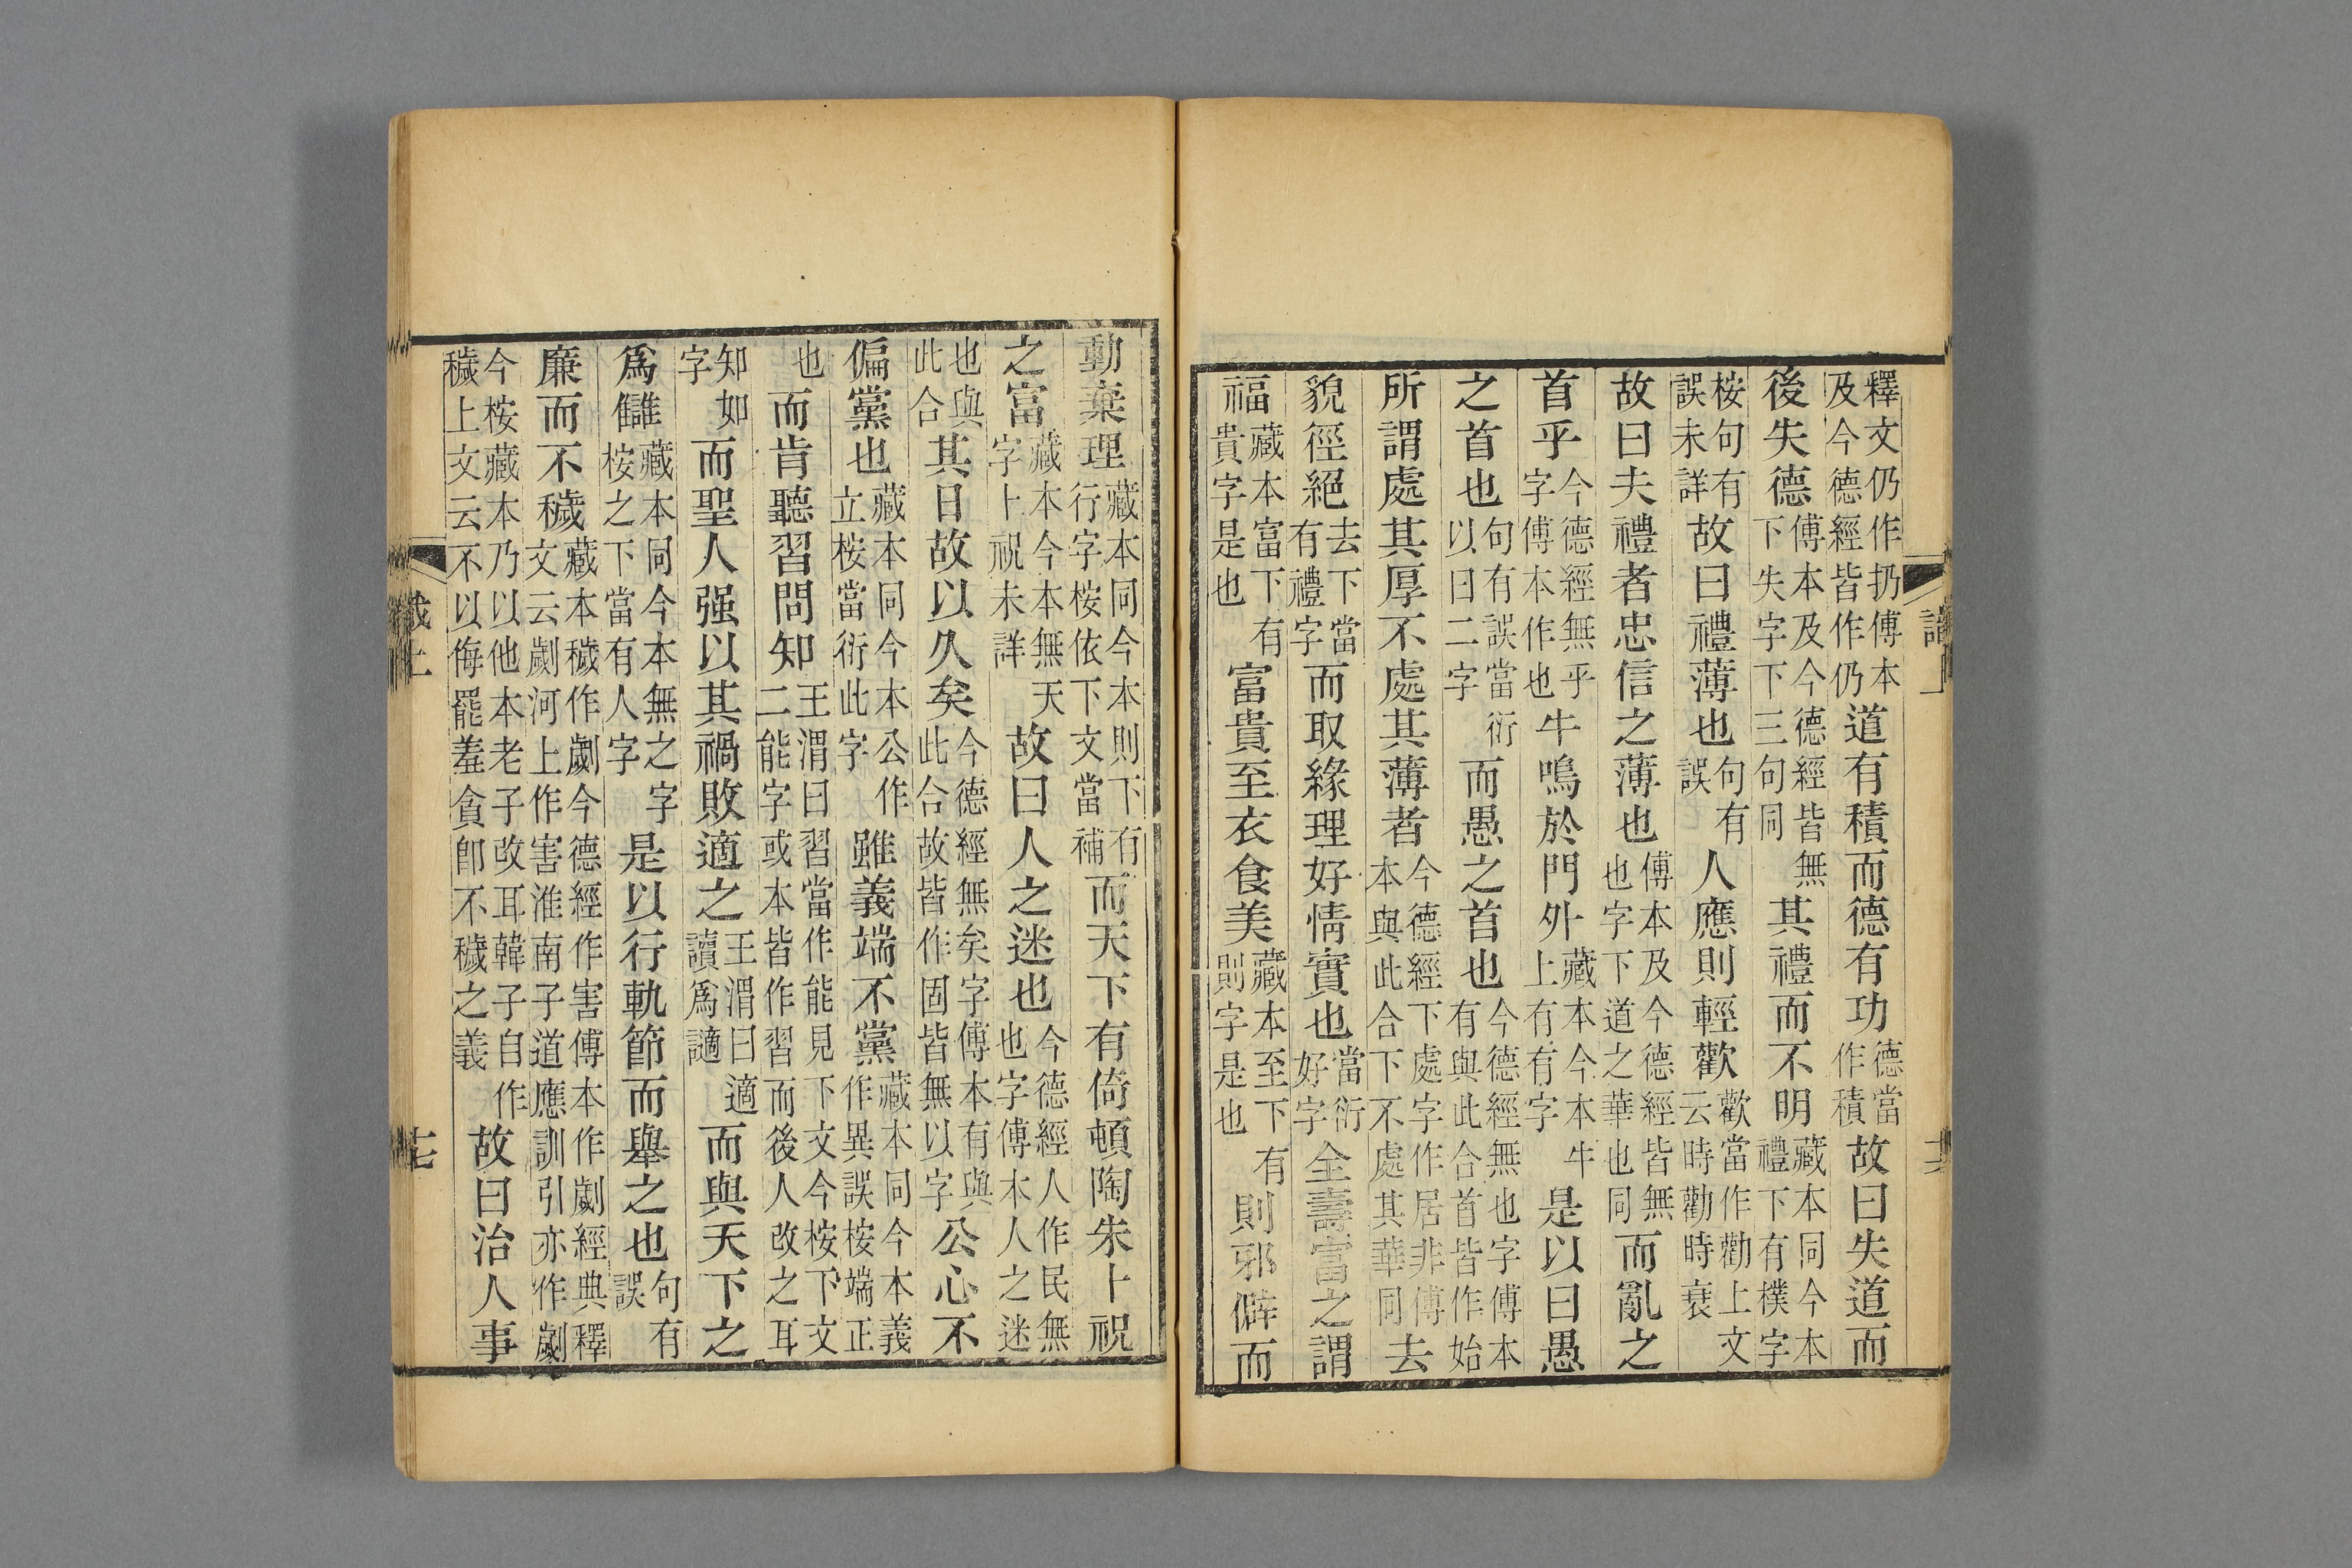 釋文仍作扔傅本及今德經皆作仍道有積而德有功德當作積故曰失道而
後失德傅本及今德經皆無下失字下三句同其禮而不明藏本同今本禮下有樸字
桉句有誤未詳故曰禮薄也句有誤人應則輕歡歡當作勸上文云時勸時衰
故曰夫禮者忠信之薄也傅本及今德經皆無也字下道之華也同而亂之
首乎今德經無乎字傅本作也牛鳴於門外藏本今本牛上有有字是以曰愚
之首也句有誤當衍以曰二字而愚之首也今德經無也字傅本有與此合首皆作始
所謂處其厚不處其薄者今德經下處字作居非傅本與此合下不處其華同去
貌徑絕去下當有禮字而取緣理好情實也當衍好字全壽富之謂
福藏本富下有貴字是也富貴至衣食美藏本至下有則字是也則邪僻而
動棄理藏本同今本則下有行字桉依下文當補而天下有倚頓陶朱卜祝
之富藏本今本無天字卜祝未詳故曰人之迷也今德經人作民無也字傅本人之迷
也與此合其日故以久矣今德經無矣字傅本有與此合故皆作固皆無以字公心不
偏黨也藏本同今本公作立桉當衍此字雖義端不黨藏本同今本義作異誤桉端正
也而肯聽習問知王渭曰習當作能見下文今桉下文二能字或本皆作習而後人改之耳
知如字而聖人强以其禍敗適之王渭曰適讀爲謫而與天下之
爲讎藏本同今本無之字桉之下當有人字是以行軌節而舉之也句有誤
廉而不穢藏本穢作劌今德經作害傅本作劌經典釋文云劌河上作害淮南子道應訓引亦作劌
今桉藏本乃以他本老子改耳韓子自作穢上文云不以侮罷羞貪卽不穢之義故曰治人事